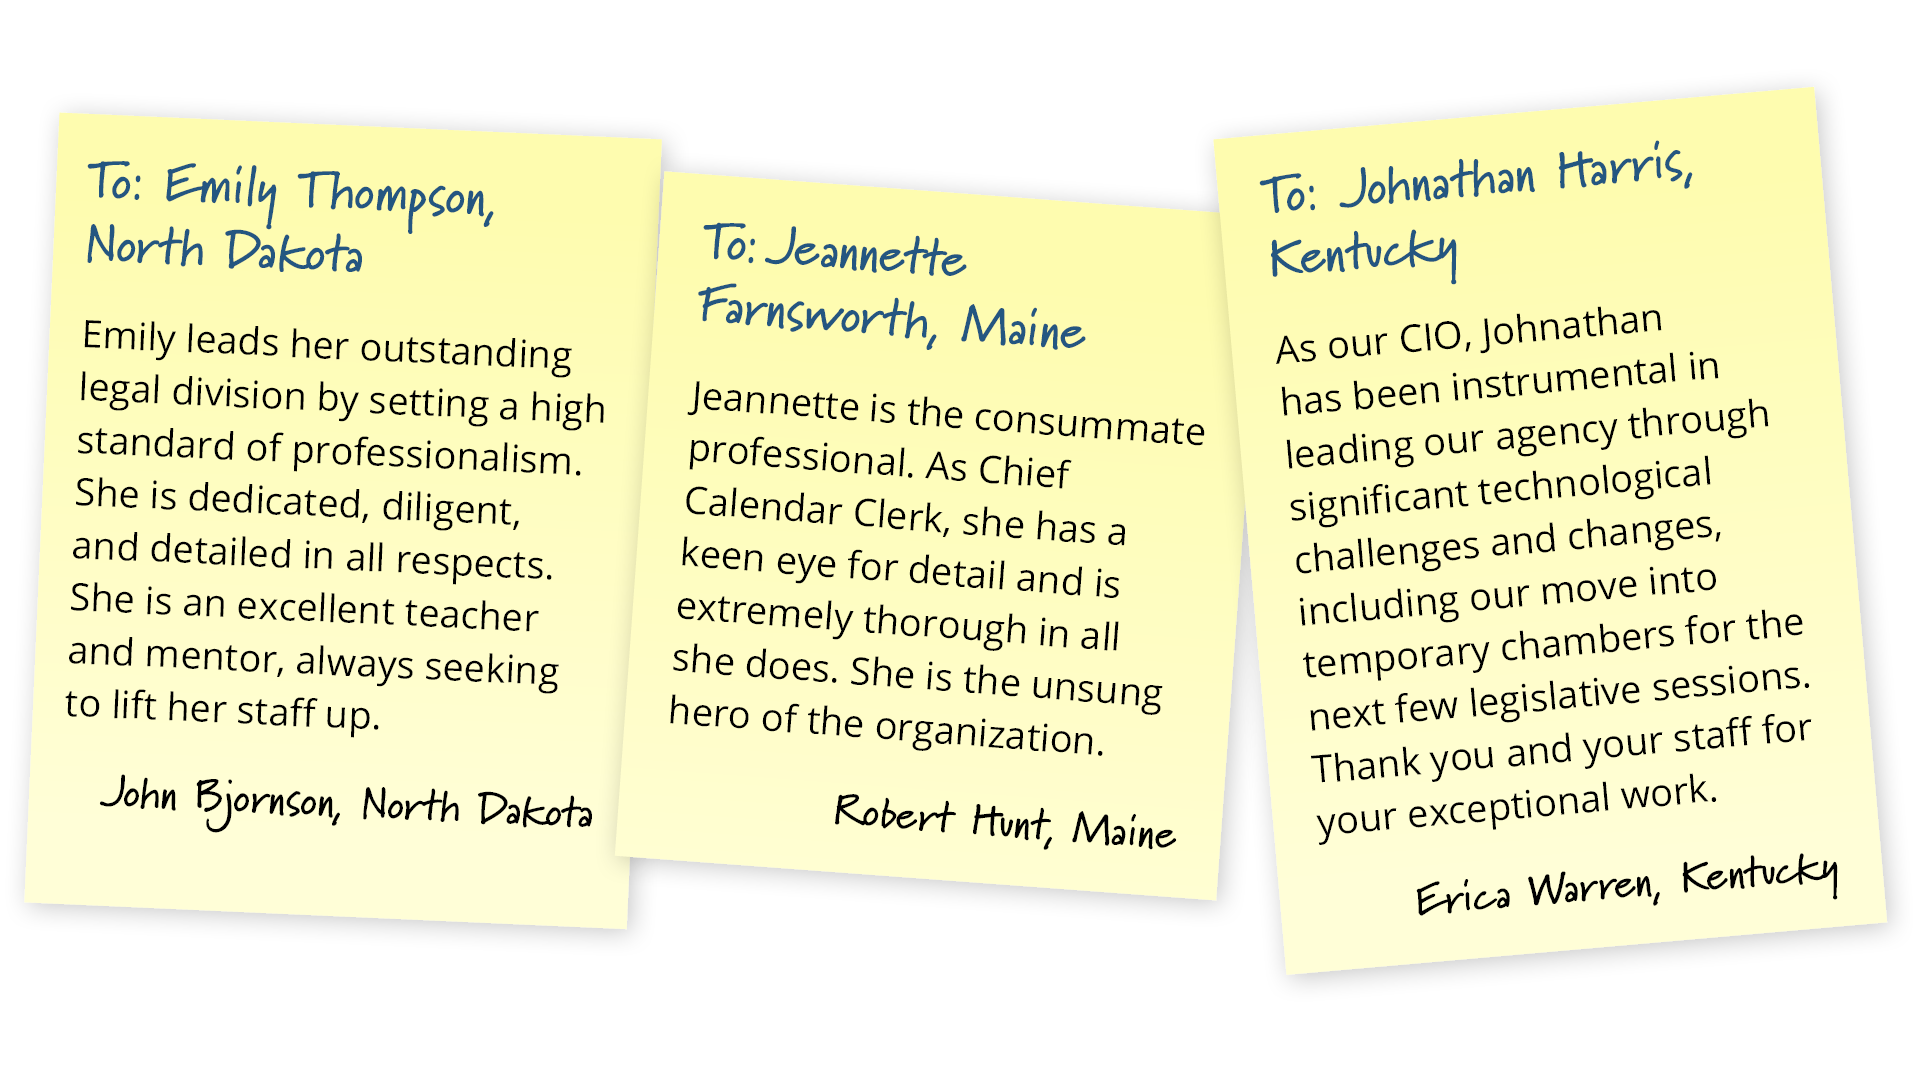 To: Emily Thompson,
North Dakota
Emily leads her outstanding
legal division by setting a high
standard of professionalism.
She is dedicated, diligent,
and detailed in all respects.
She is an excellent teacher
and mentor, always seeking
to lift her staff up.
John Bjornson, North Dakota
To: Jeannette
Farnsworth, Maine
Jeannette is the consummate
professional. As Chief
Calendar Clerk, she has a
keen eye for detail and is
extremely thorough in all
she does. She is the unsung
hero of the organization.
Robert Hunt, Maine
To: Johnathan Harris,
Kentucky
As our CIO, Johnathan
has been instrumental in
leading our agency through
significant technological
challenges and changes,
including our move into
temporary chambers for the
next few legislative sessions.
Thank you and your staff for
your exceptional work.
Erica Warren, Kentucky